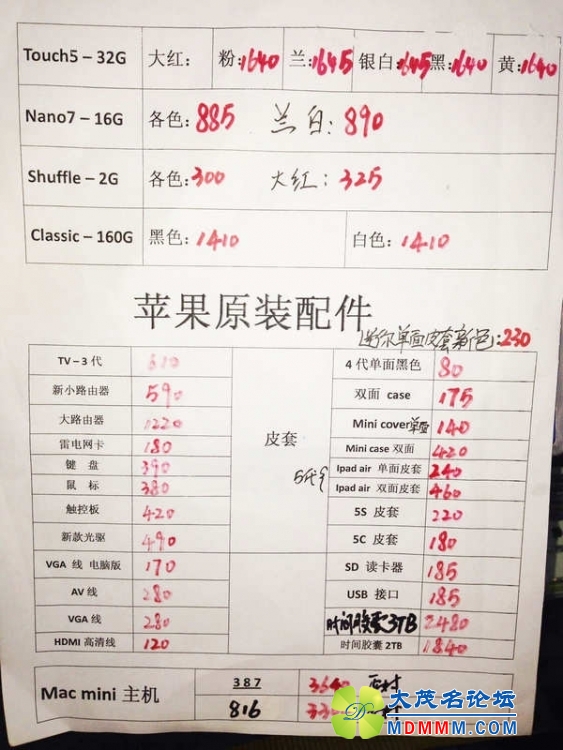 Touch5 – 32G 大红: 粉:1640 兰:1645 银白:1645 黑:1640 黄:1640
Nano7 – 16G 各色:885 兰白:890
Shuffle – 2G 各色:300 大红:325
Classic – 160G 黑色:1410 白色:1410
苹果原装配件
迷你单面皮套新色:230
TV – 3 代 610 皮套 4 代单面黑色 80
新小路由器 590 双面 case 175
大路由器 1220 Mini cover单面 140
雷电网卡 180 Mini case 双面 420
键 盘 390 Ipad air 单面皮套 240
鼠 标 380 Ipad air 双面皮套 460
触控板 420 5S 皮套 220
新款光驱 490 5C 皮套 180
VGA 线 电脑版 170 SD 读卡器 185
AV 线 280 USB 接口 185
VGA 线 280 时间胶囊3TB 2480
HDMI 高清线 120 时间胶囊 2TB 1840
Mac mini 主机 387
816
大茂名论坛
MDMMM.COM